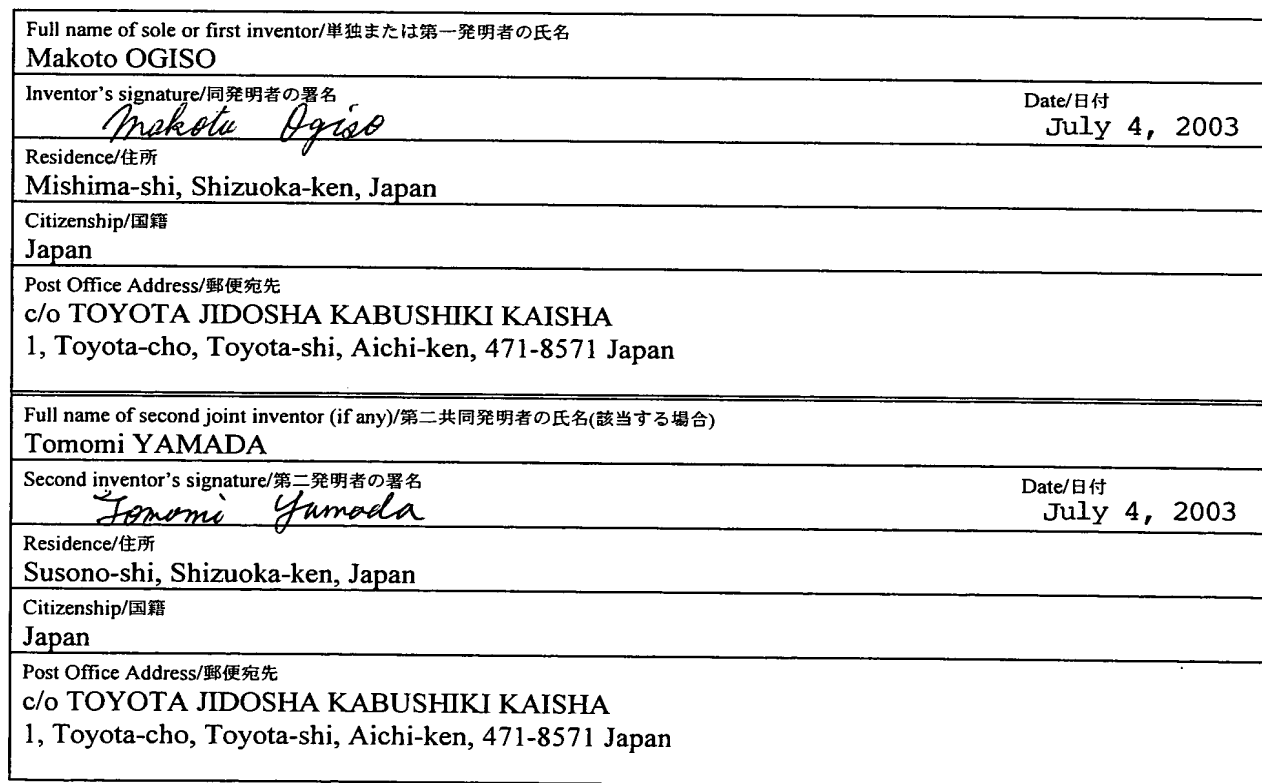 Full name of sole or first inventor/単独または第一発明者の氏名
Makoto OGISO
Inventor's signature/同発明者の署名 Date/日付
Makoto Ogiso July 4, 2003
Residence/住所
Mishima-shi, Shizuoka-ken, Japan
Citizenship/国籍
Japan
Post Office Address/郵便宛先
c/o TOYOTA JIDOSHA KABUSHIKI KAISHA
1, Toyota-cho, Toyota-shi, Aichi-ken, 471-8571 Japan
Full name of second joint inventor (if any)/第二共同発明者の氏名(該当する場合)
Tomomi YAMADA
Second inventor's signature/第二発明者の署名 Date/日付
Tomomi Yamada July 4, 2003
Residence/住所
Susono-shi, Shizuoka-ken, Japan
Citizenship/国籍
Japan
Post Office Address/郵便宛先
c/o TOYOTA JIDOSHA KABUSHIKI KAISHA
1, Toyota-cho, Toyota-shi, Aichi-ken, 471-8571 Japan